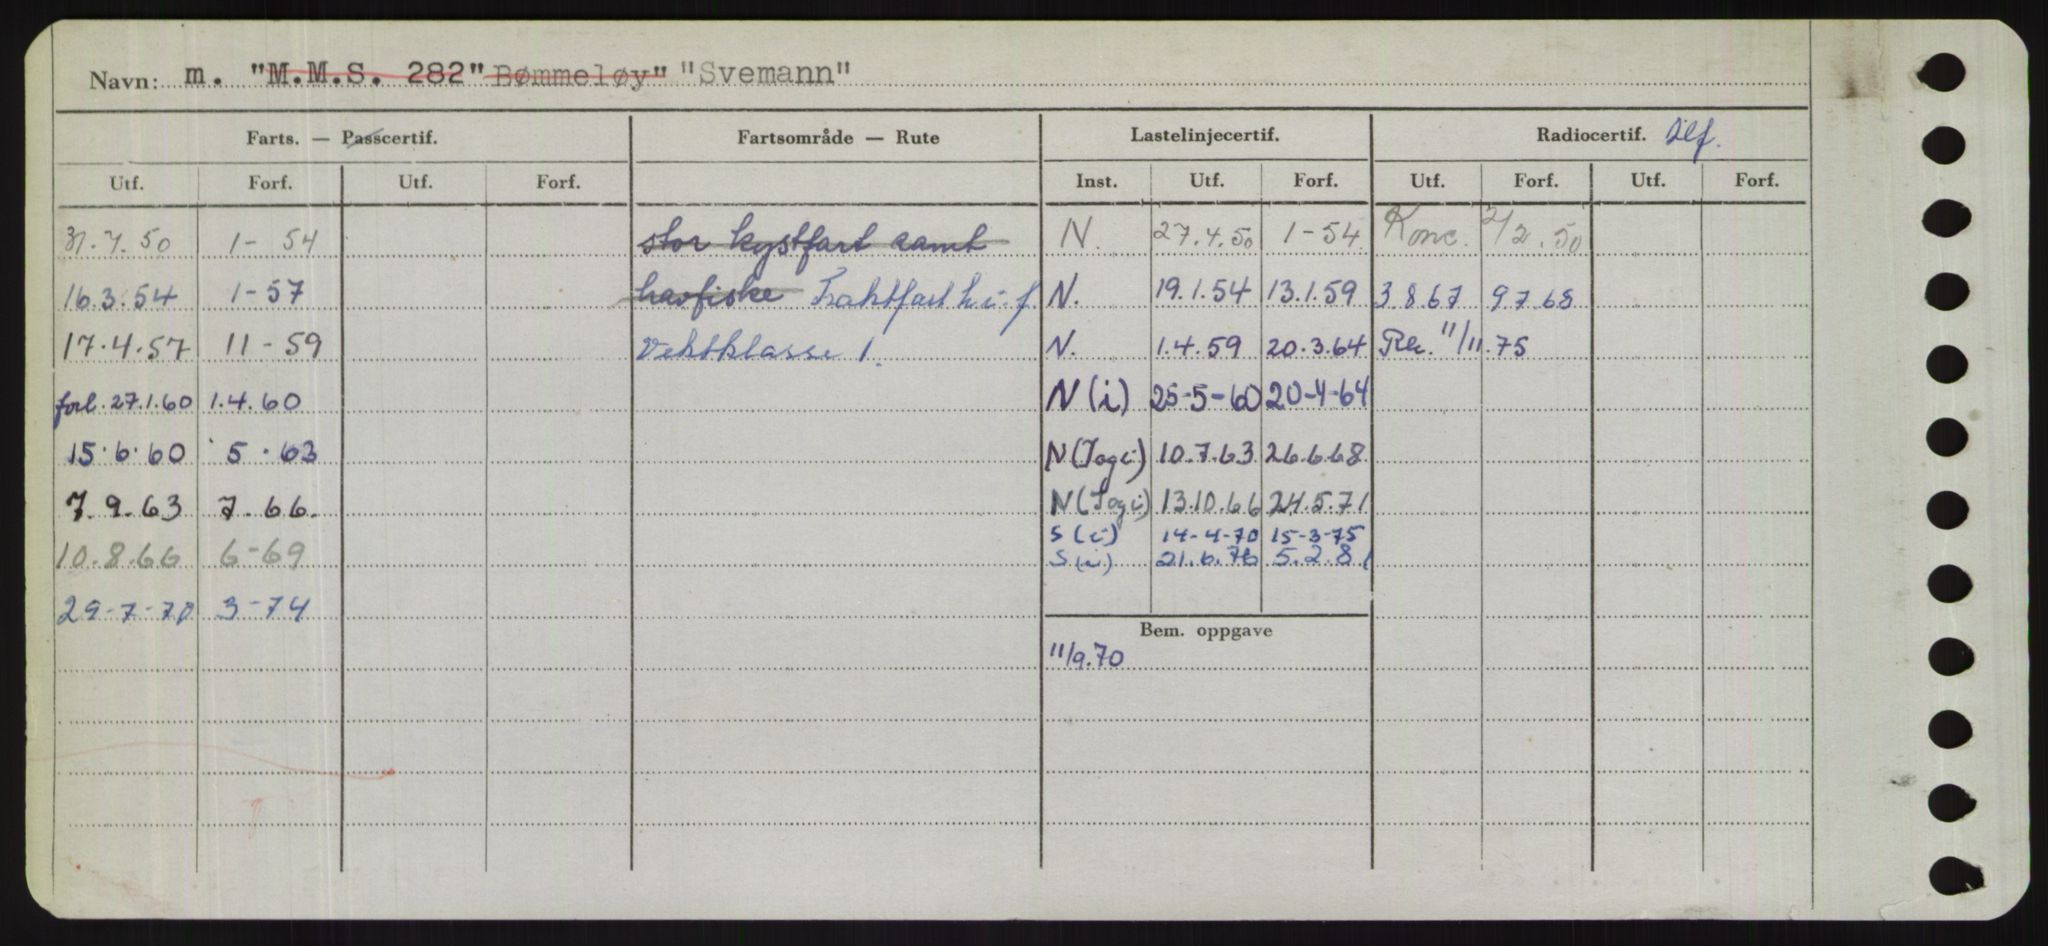 Navn: m. "M.M.S. 282" Bømmeløy" "Svemann"
Farts. — Passcertif. Fartsområde — Rute Lastelinjecertif. Radiocertif.
Utf. Forf. Utf. Forf. Inst. Utf. Forf. Utf. Forf. Utf. Forf.
31.7.50 1- 54 stor kystfart samt N. 27.4.50 1-54 Konc. 2/2.50
16.3.54 1-57 havfiske Fraktfart h.i.f. N. 19.1.54 13.1.59 3.8.67 9.7.68
17.4.57 11-59 Vektklasse 1. N. 1.4.59 20.3.64 11/11.75
forl. 27.1.60 1.4.60 N(i) 25-5-60 20-4-64
15.6.60 5.63 N(T og i) 10.7.63 26.6.68
7.9.63 7.66. N(T og i) 13.10.66 24.5.71
S(i) 14-4-70 15-3-75
10.8.66 6-69 S(i) 21.6.76 5.2.81
29-7-70 3-74
Bem. oppgave
11/9.70